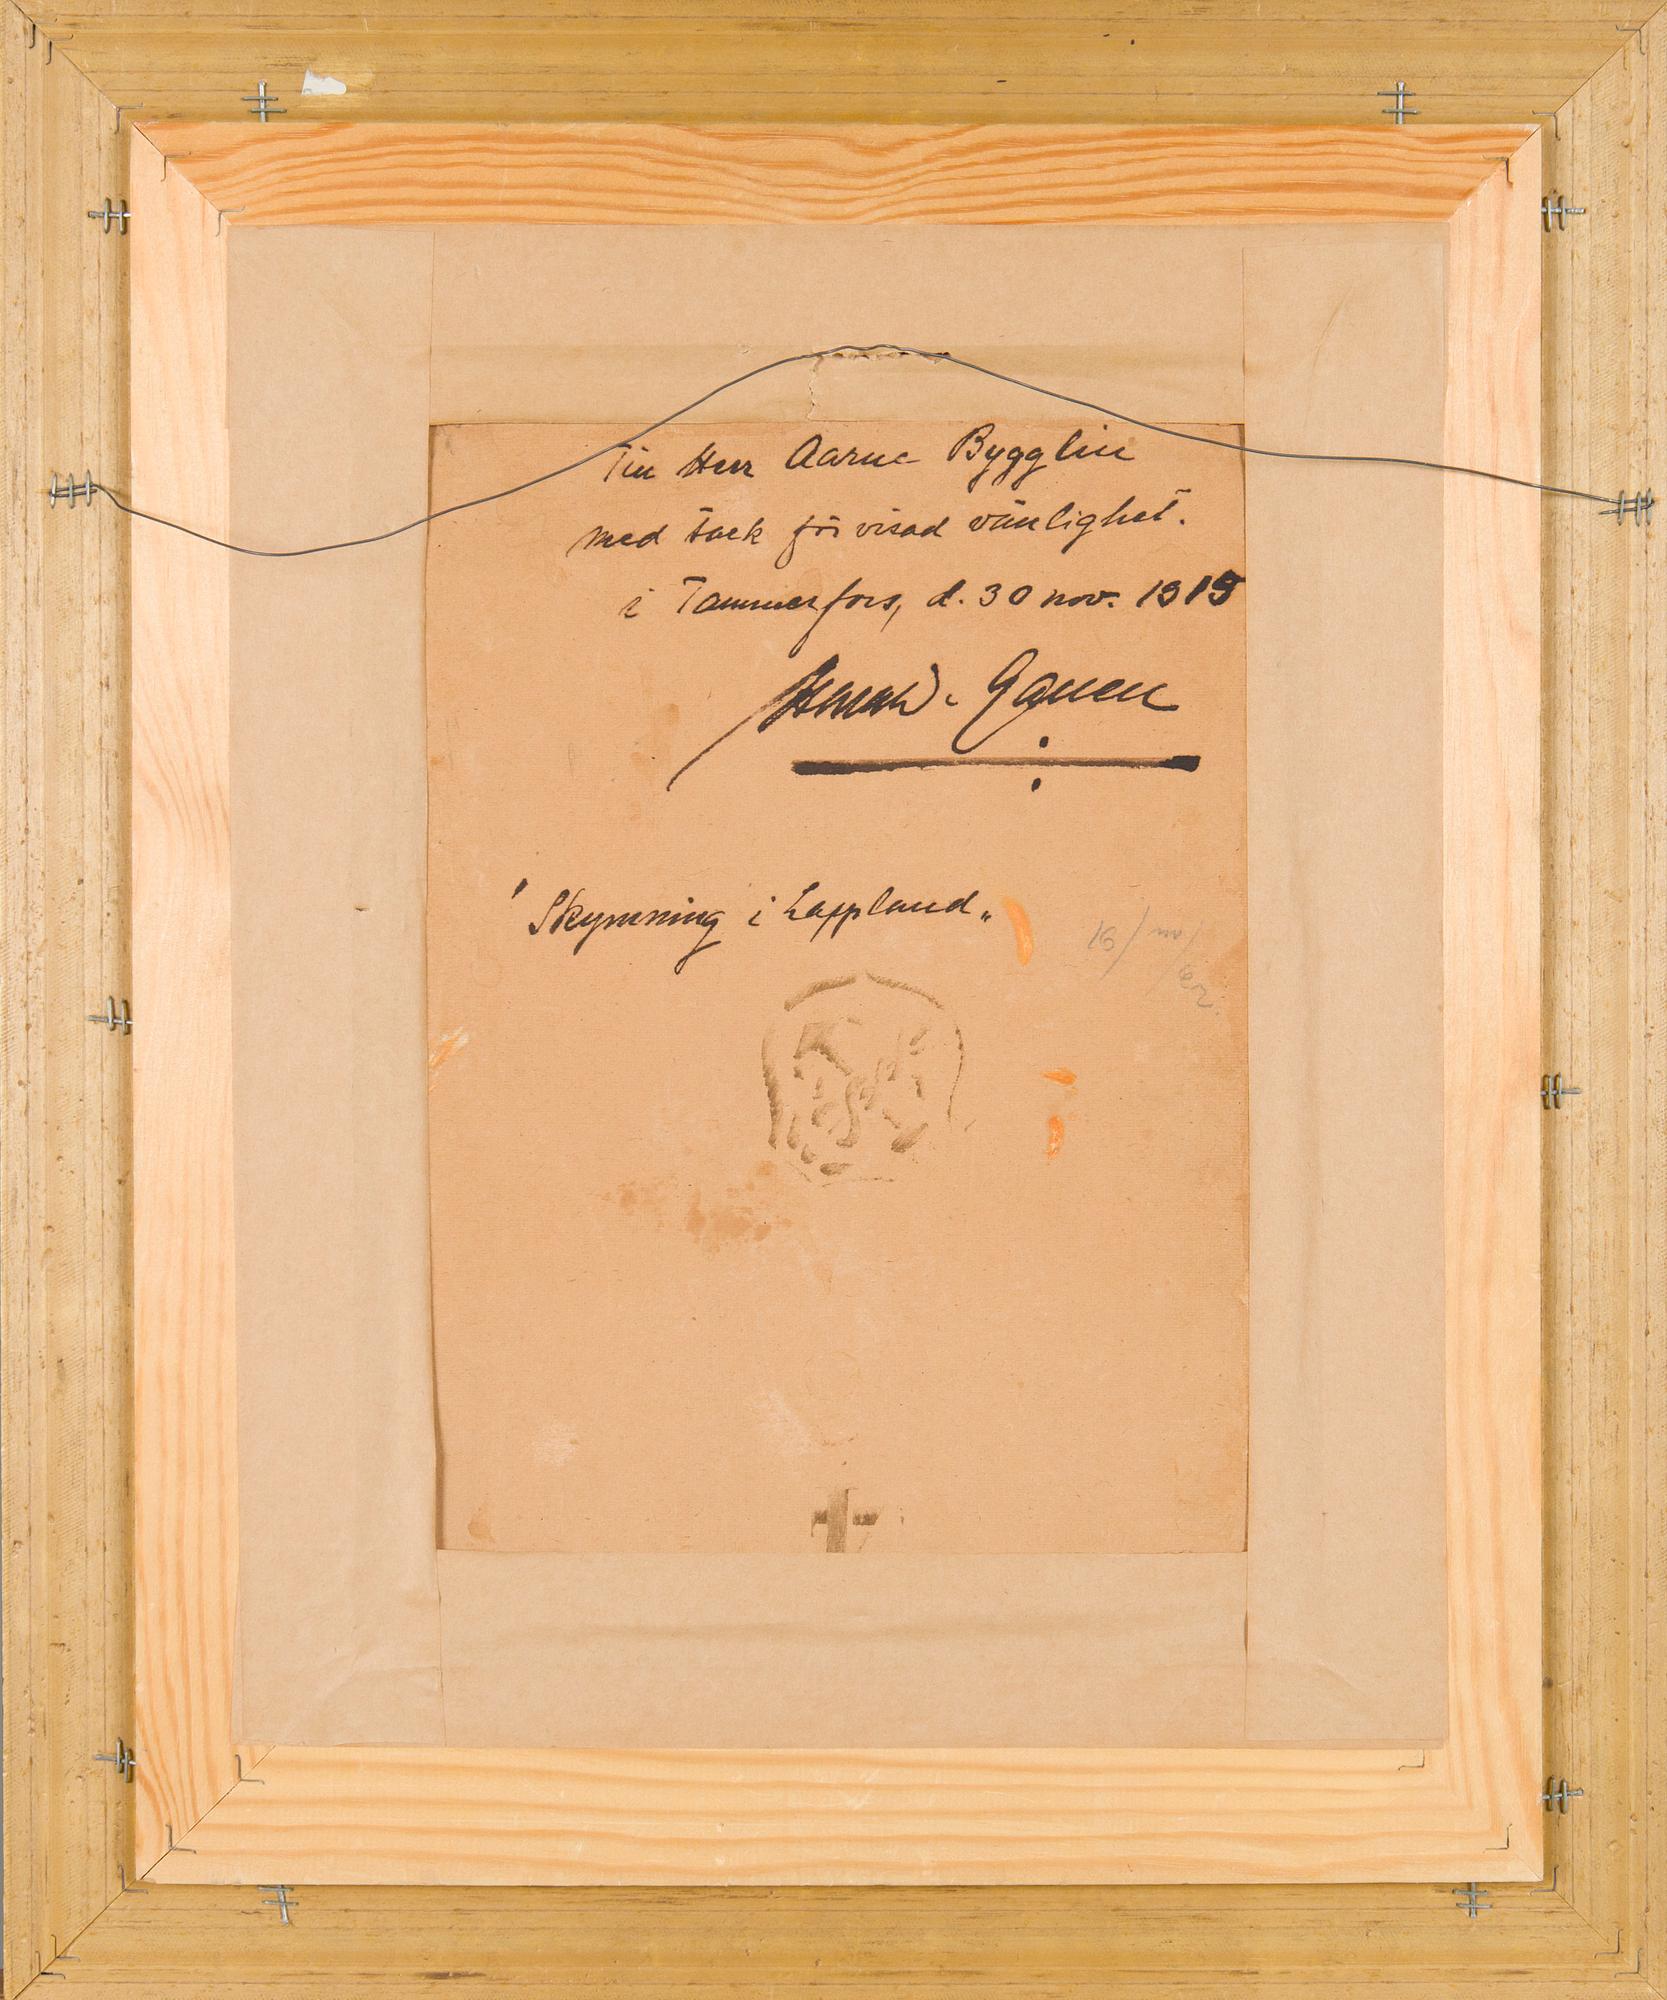 Till Herr Aarne Bygglin
med tack för visad vänlighet.
i Tammerfors, d. 30 nov. 1919
Gauen
" Skymning i Lappland„